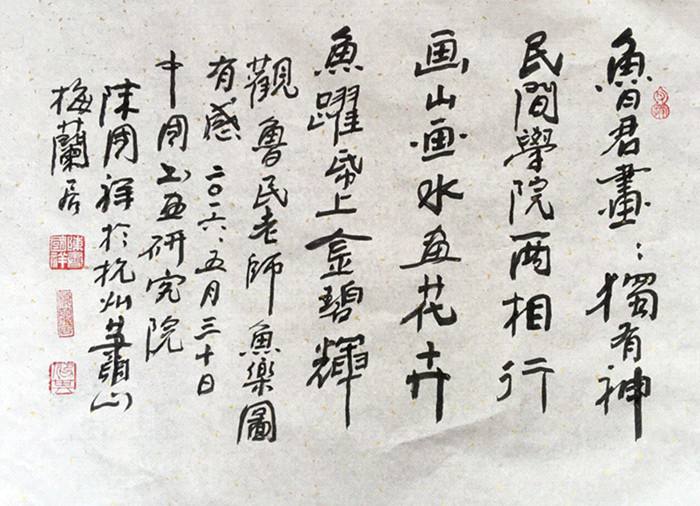 魯君畫〻獨有神
民間學院兩相行
画山画水画花卉
魚躍帋上金碧輝
觀魯民老師魚樂圖
有感 二〇一六、五月三十日
中国书画研究院
陈国祥於杭州萧山
梅蘭居
陳國祥